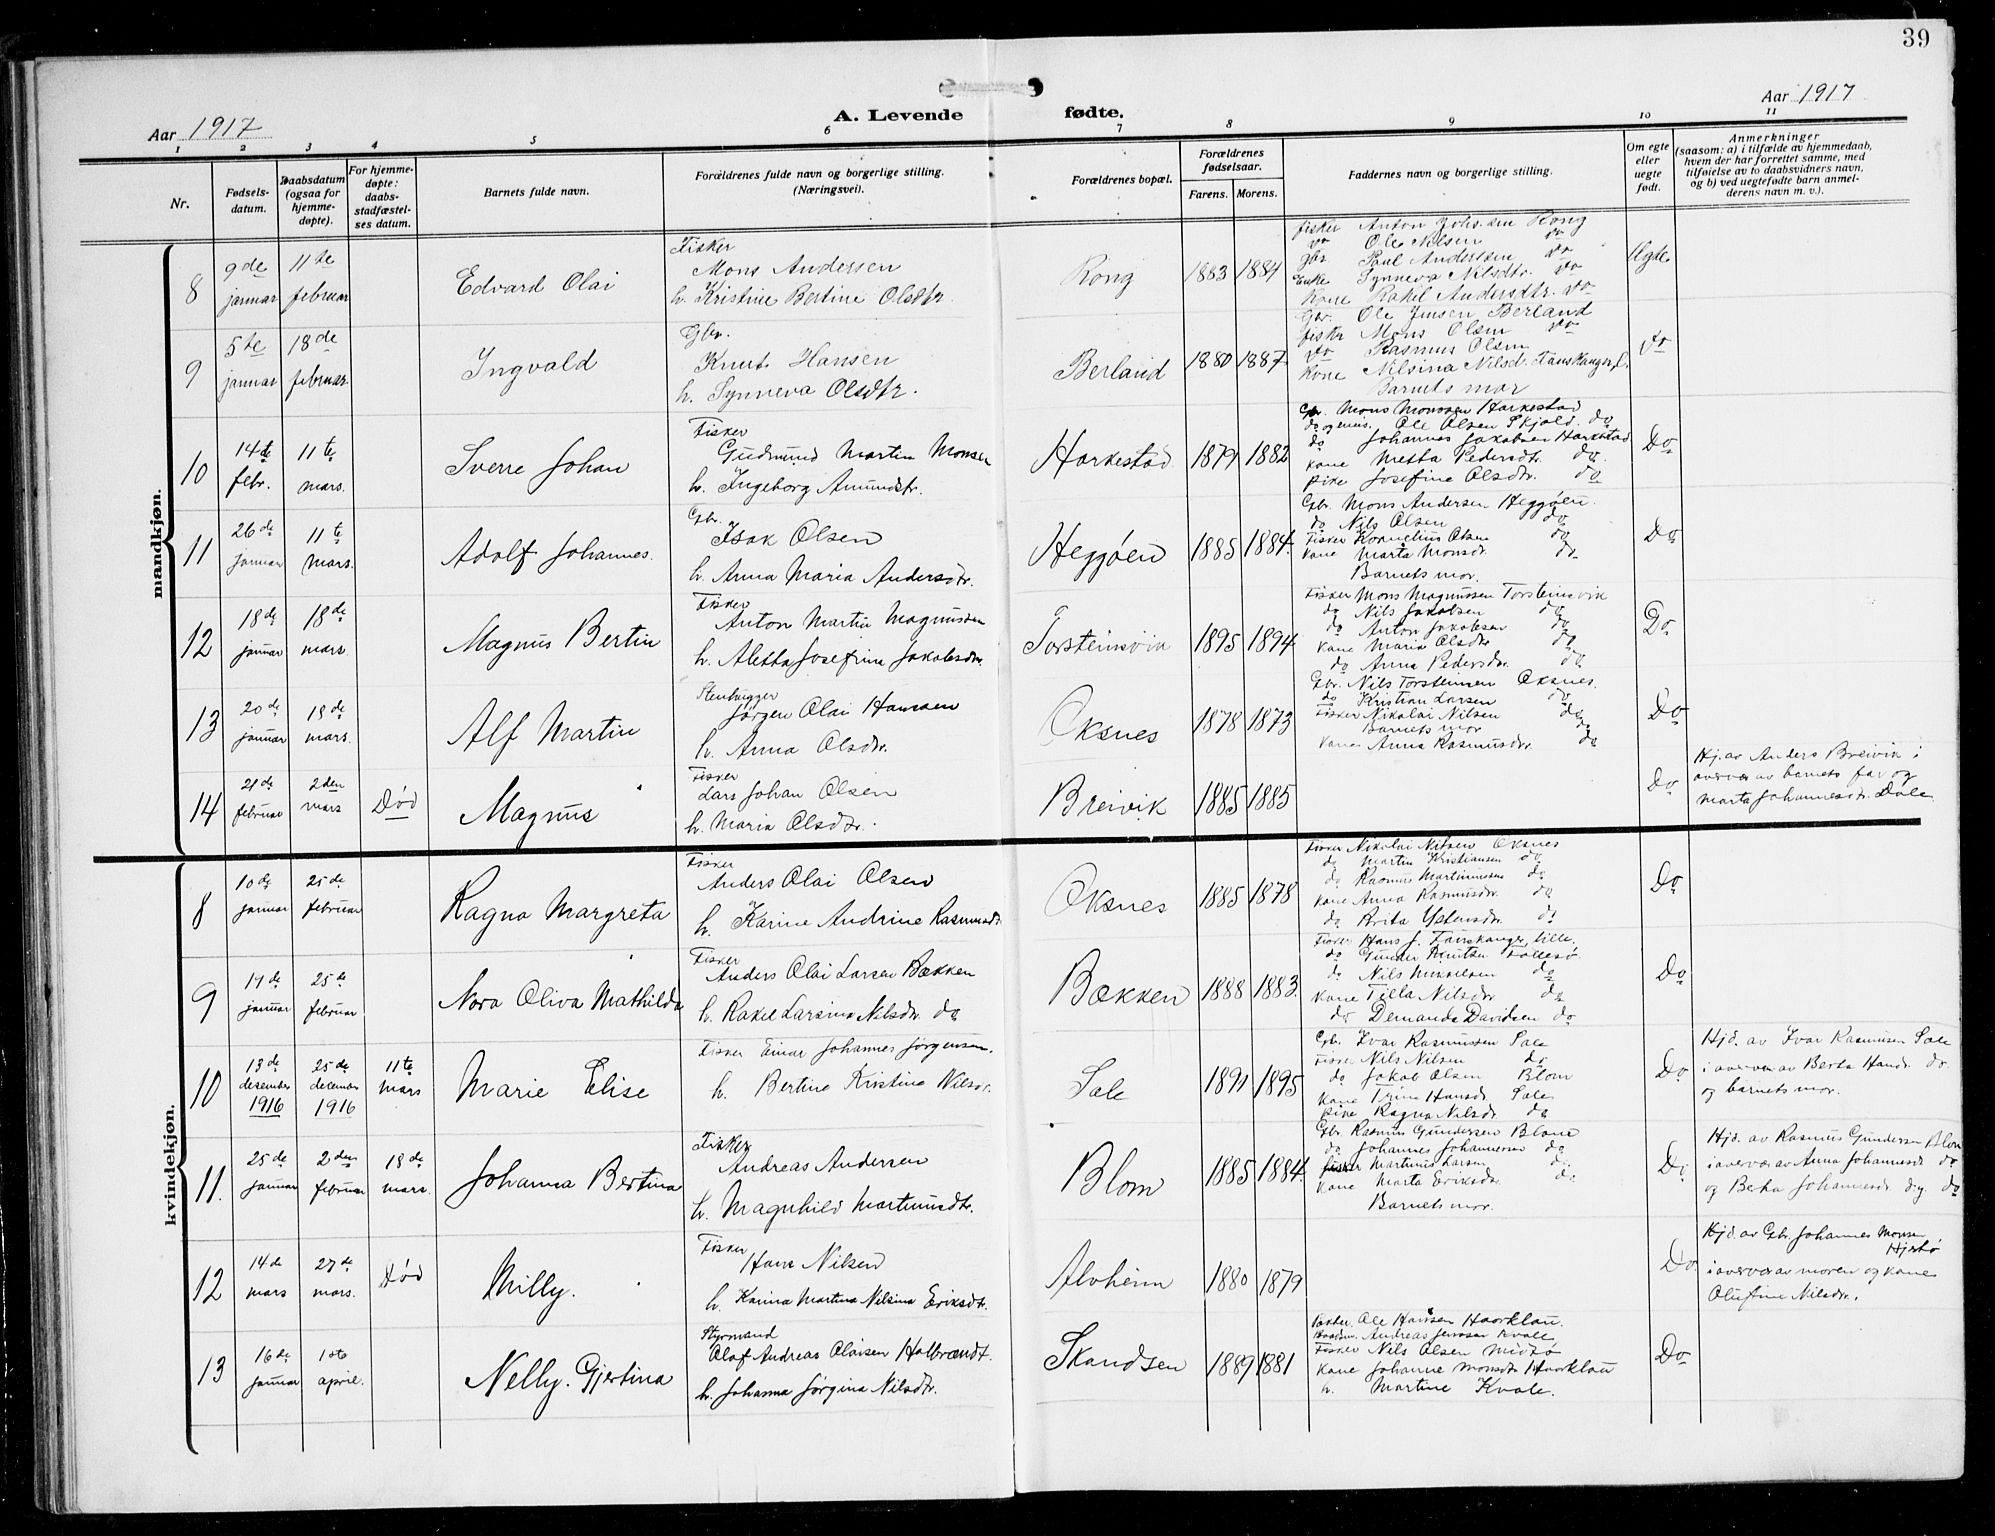 39
Aar 1917
A. Levende fødte.
Aar 1917
1 2 3 4 5 6 7 8 9 10 11
Nr.
Fødsels-
datum.
Daabsdatum
(ogsaa for
hjemme-
døpte).
For hjemme-
døpte:
daabs-
stadfæstel-
ses datum.
Barnets fulde navn.
Forældrenes fulde navn og borgerlige stilling.
(Næringsvei).
Forældrenes bopæl.
Forældrenes
fødselsaar.
Farens. Morens.
Faddernes navn og borgerlige stilling.
Om egte
eller
uegte
født.
Anmerkninger
(saasom: a) i tilfælde av hjemmedaab,
hvem der har forrettet samme, med
tilføielse av to daabsvidners navn,
og b) ved uegtefødte barn anmel-
derens navn m. v.).
mandkjøn.
8
9de
januar
11te
februar
Edvard Olai
Fisker
Mons Andersen
h. Kristine Bertine Olsdtr.
Rong
1883 1884
fisker Anton Johnsen Rong
do Ole Nilsen do
gbr. Paul Anderssen do
Enke Synneva Nilsdtr. do
Kone Rakel Andersdtr. do
Egte
9
5te
januar
18de
februar.
Ingvald
Gbr.
Knut Hansen
h. Synneva Olsdtr.
Berland
1880 1887
Gbr. Ole Jensen Berland
fisker Mons Olsen do
do Rasmus Olsen
Kone Nilsina Nilsd. Fauskanger, l.
Barnets mor
do
10
14de
febr.
11te
mars.
Sverre Johan
Fisker
Gudmund Martin Monsen
h. Ingeborg Amundsdtr.
Harkestad
1879 1882
Gbr. Mons Monssen Harkestad
do Ole Olsen Skjold. do
do Johannes Jakobsen Harkestad
kone Metta Pedersdtr. do.
pike Josefine Olsdtr. do
Do
11
26de
januar
11te
mars.
Adolf Johannes.
Gbr.
Isak Olsen
h. Anna Maria Andersdtr.
Heggøen
1885 1884.
Gbr. Mons Andersen Heggøen.
do Nils Olsen do
Fisker Kornelius Olsen do
kone Marta Monsdr. do.
Barnets mor.
Do
12
18de
januar
18de
mars.
Magnus Bertin
Fisker
Anton Martin Magnussen
h. Aletta Josefine Jakobsdtr.
Torsteinsvik
1895 1894
Fisker Mons Magnussen Torsteinsvik
do Nils Jakobsen do
do Anton Jakobsen do
kone Maria Olsdtr do
do Anna Pedersdtr. do
Do
13
20de
januar
18de
mars.
Alf Martin
Stenhugger
Jørgen Olai Hansen
h. Anna Olsdtr.
Oksnes
1878 1873
Gbr. Nils Torsteinsen Oksnes.
do Kristian Larsen do
Fisker Nikolai Nilsen do
Barnets mor do
kone Anna Rasmusdtr. do
Do
14
21de
februar
2den
mars
Død
Magnus
Fisker
Lars Johan Olsen
h. Maria Olsdtr.
Breivik
1885 1885
Do
Hj. av Anders Breivik i
overvær av barnets far og
Marta Johannesdtr. Dale
kvindekjøn.
8
10de
januar
25de
februar
Ragna Margreta
Fisker
Anders Olai Olsen
h. Karine Andrine Rasmusdtr.
Oksnes
1885 1878
Fisker Nikolai Nilsen Oksnes
do Martin Kristiansen do
do Rasmus Martinussen do
kone Anna Rasmusdtr. do
do Brita Ystensdr. do
Do
9
17de
januar
25de
februar
Nora Oliva Mathilda
Fisker
Anders Olai Larsen Bækken
h. Rakel Larsina Nilsdtr. do
Bækken
1888 1883.
Fisker Hans J. Fauskanger, lille.
do Gunder Knutsen Tollesø
do Nils Mikkelsen do
kone Tilla Nilsdr. do
do Demanda Davidsen do
Do
10
13de
desember
1916
25de
december
1916
11te
mars
Marie Elise
Fisker Einar Johannes Jørgensen.
h. Bertine Kristina Nilsdr.
Sale
1891 1895
Gbr. Ivar Rasmussen Sale
Fisker Nils Nilsen do
do Jakob Olsen Blom
kone Trine Hansdr. Sale
pike Ragna Nilsdr. do
Do
Hjd. av Ivar Rasmusen Sale
i overvær av Berta Hansd. do.
og barnets mor.
11.
25de
januar
2den
februar
18de
mars.
Johanna Bertina
Fisker
Andreas Andersen
h. Magnhild Martinusdtr.
Blom
1885 1884.
Gbr. Rasmus Gundersen Blom
do Johannes Johannessen do
fisker Martinus Larsen do.
kone Marta Eriksdtr. do
Barnets mor.
Do
Hjd. av Rasmus Gundersen Blom
i overvær av Anna Johannesd. do
og Berta Johannesdr. d.y. do
12
14de
mars
27de
mars.
Død
Milly.
Fisker
Hans Nilsen
h. Karina Martina Nilsina Eriksdtr.
Alvheim
1880 1879
Do.
Hjd. av Gbr. Johannes Monsen
Hjertø
i overvær av moren og kone
Olufine Nilsdtr.
13
16de
januar
1ste
april.
Nelly. Gjertina
Styrmand
Olaf Andreas Olaisen Halbrændt.
h. Johanna Jørgina Nilsdtr.
Skandsen
1889 1881
Ole Hansen Haorklau.
Andreas Jenssen Kvale
Fisker Nils Olsen Midtø
Kone Johanne Monsdtr Haorklau
h. Martine Kvale.
Do